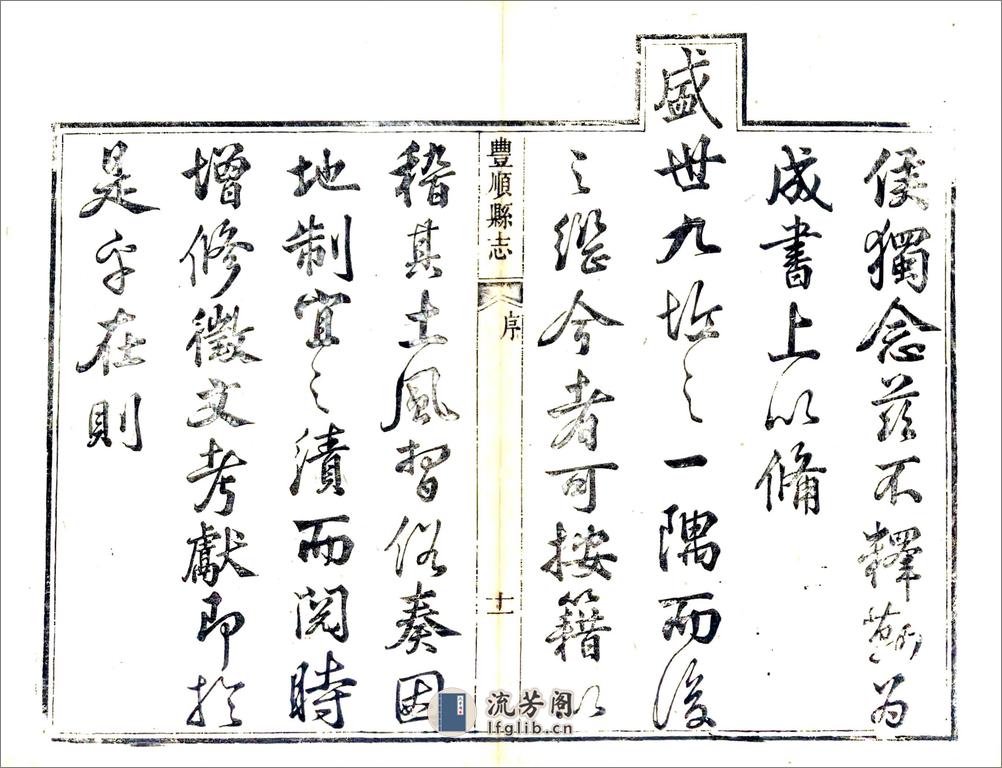 侯獨念茲不釋蘄為
成書上以備
盛世九之一隅而後
之繼今者可按籍以
豐順縣志 序 十一
稽其土風習俗奏因
地制宜之績而閱時
增修徵文考獻即於
是乎在則
流芳阁
lfglib.cn